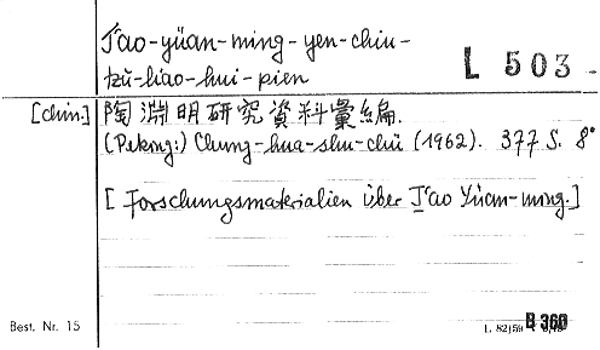 T'ao-yüan-ming-yen-chiu-
tzŭ-liao-hui-pien
L 503
[chin.] 陶淵明研究資料彙編.
(Peking:) Chung-hua-shu-chü (1962). 377 S. 8°
[Forschungsmaterialien über T'ao Yüan-ming.]
Best. Nr. 15
L 82159
B 360